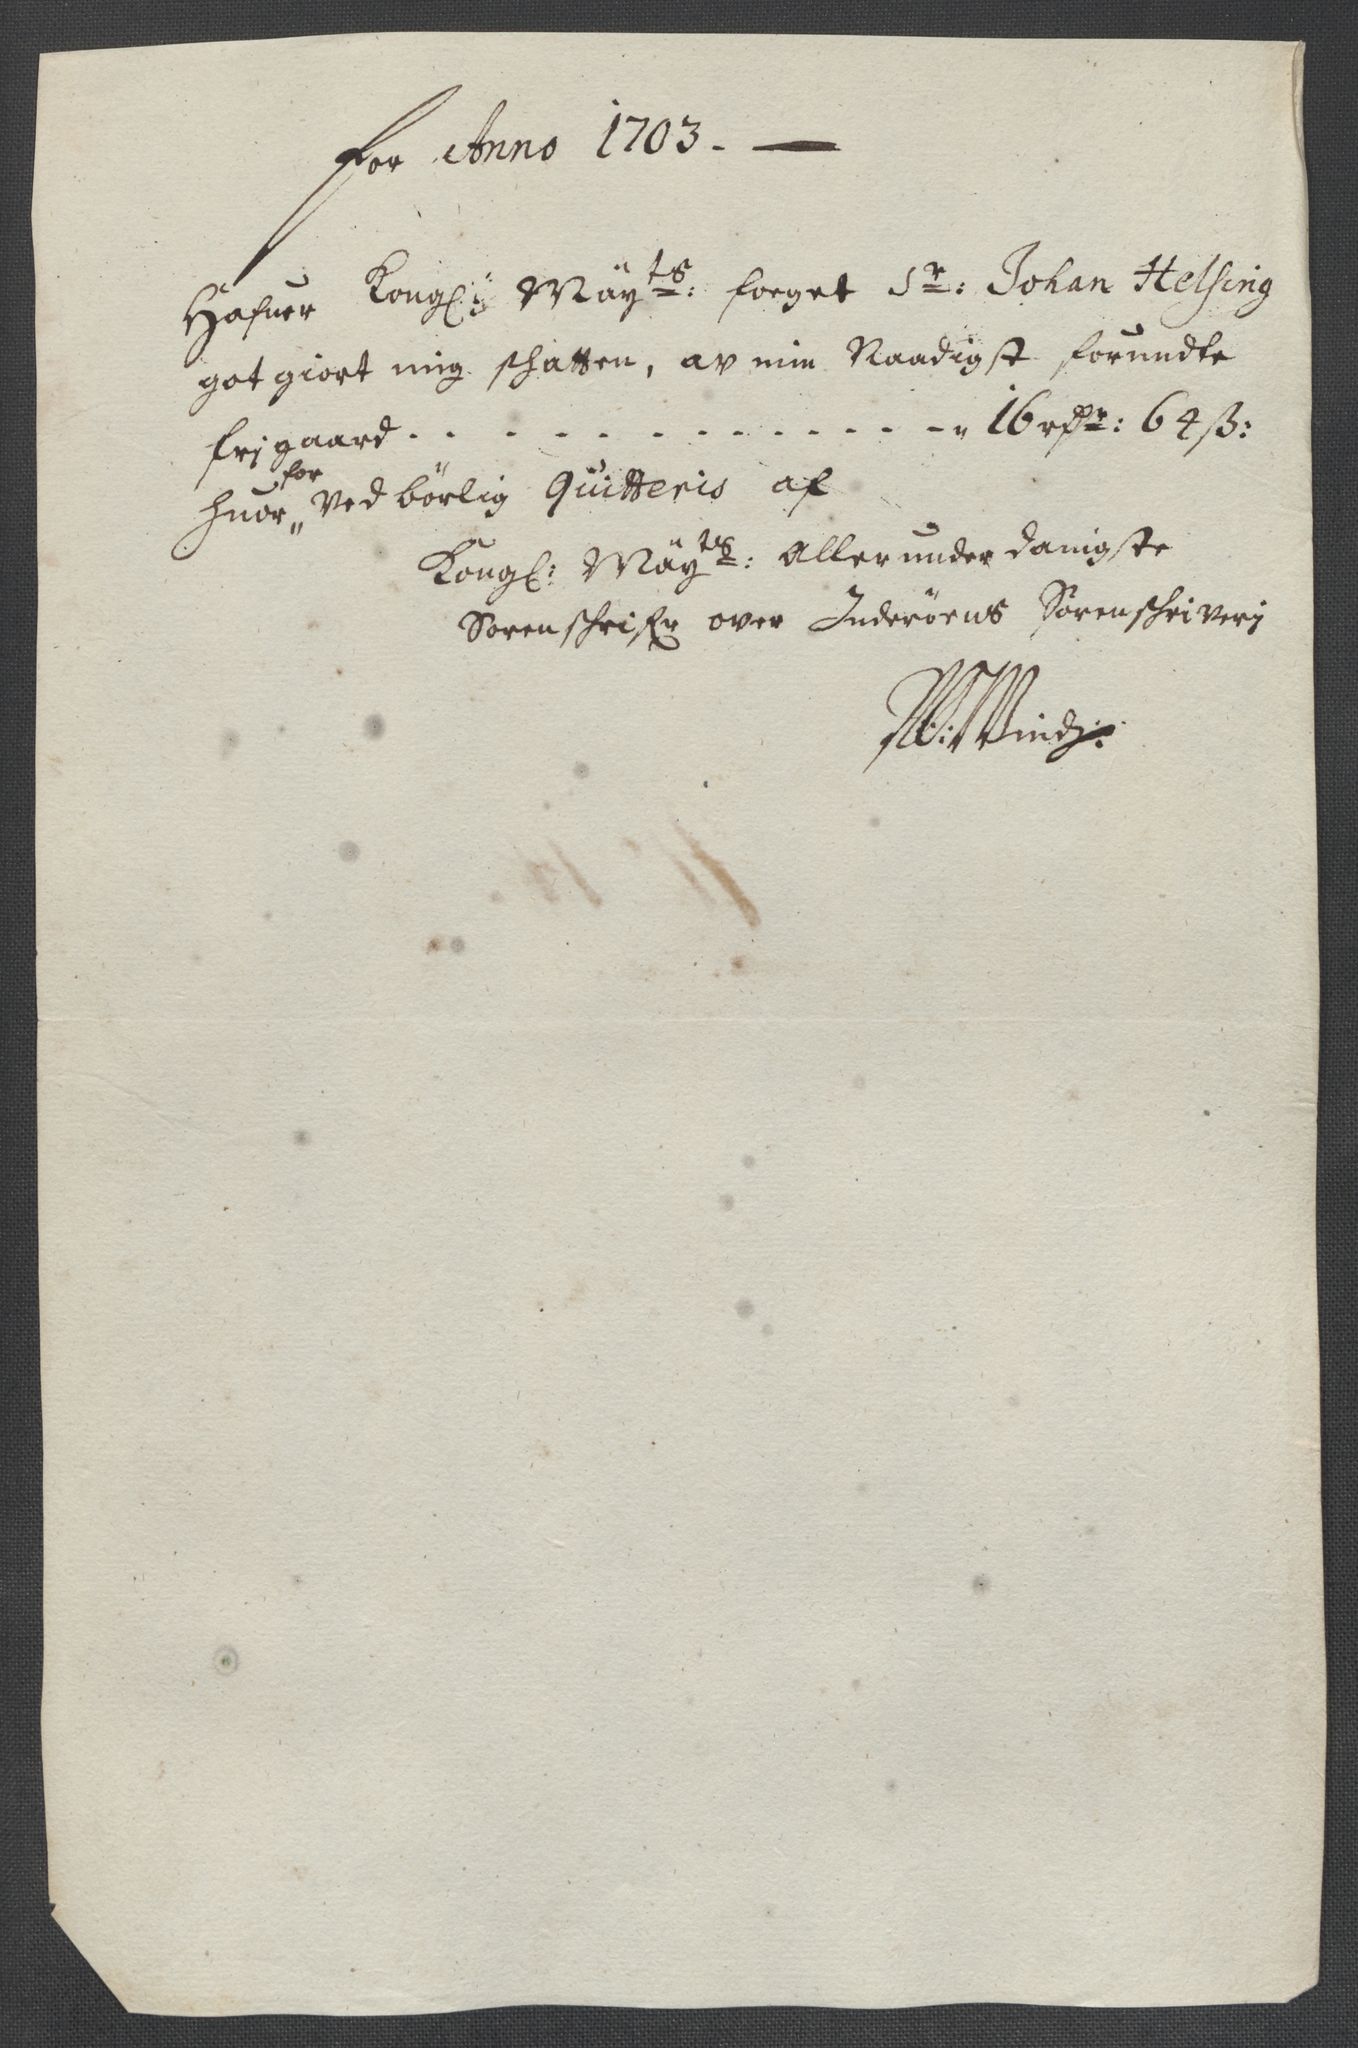 for Anno 1703.
Hafuer Kongl: Mäyts: foeget Sr: Johan Helsing
got giort mig schatten, av min Naadigst forundte
frj gaard . . . . . . . . . . . . 16 rdr: 64 ß:
for
huor„ ved börlig Quitteris af
Kongl: Mäyts: Allerunder danigste
Sorenschrifr over Inderöens Sorenschriverj
Windz: